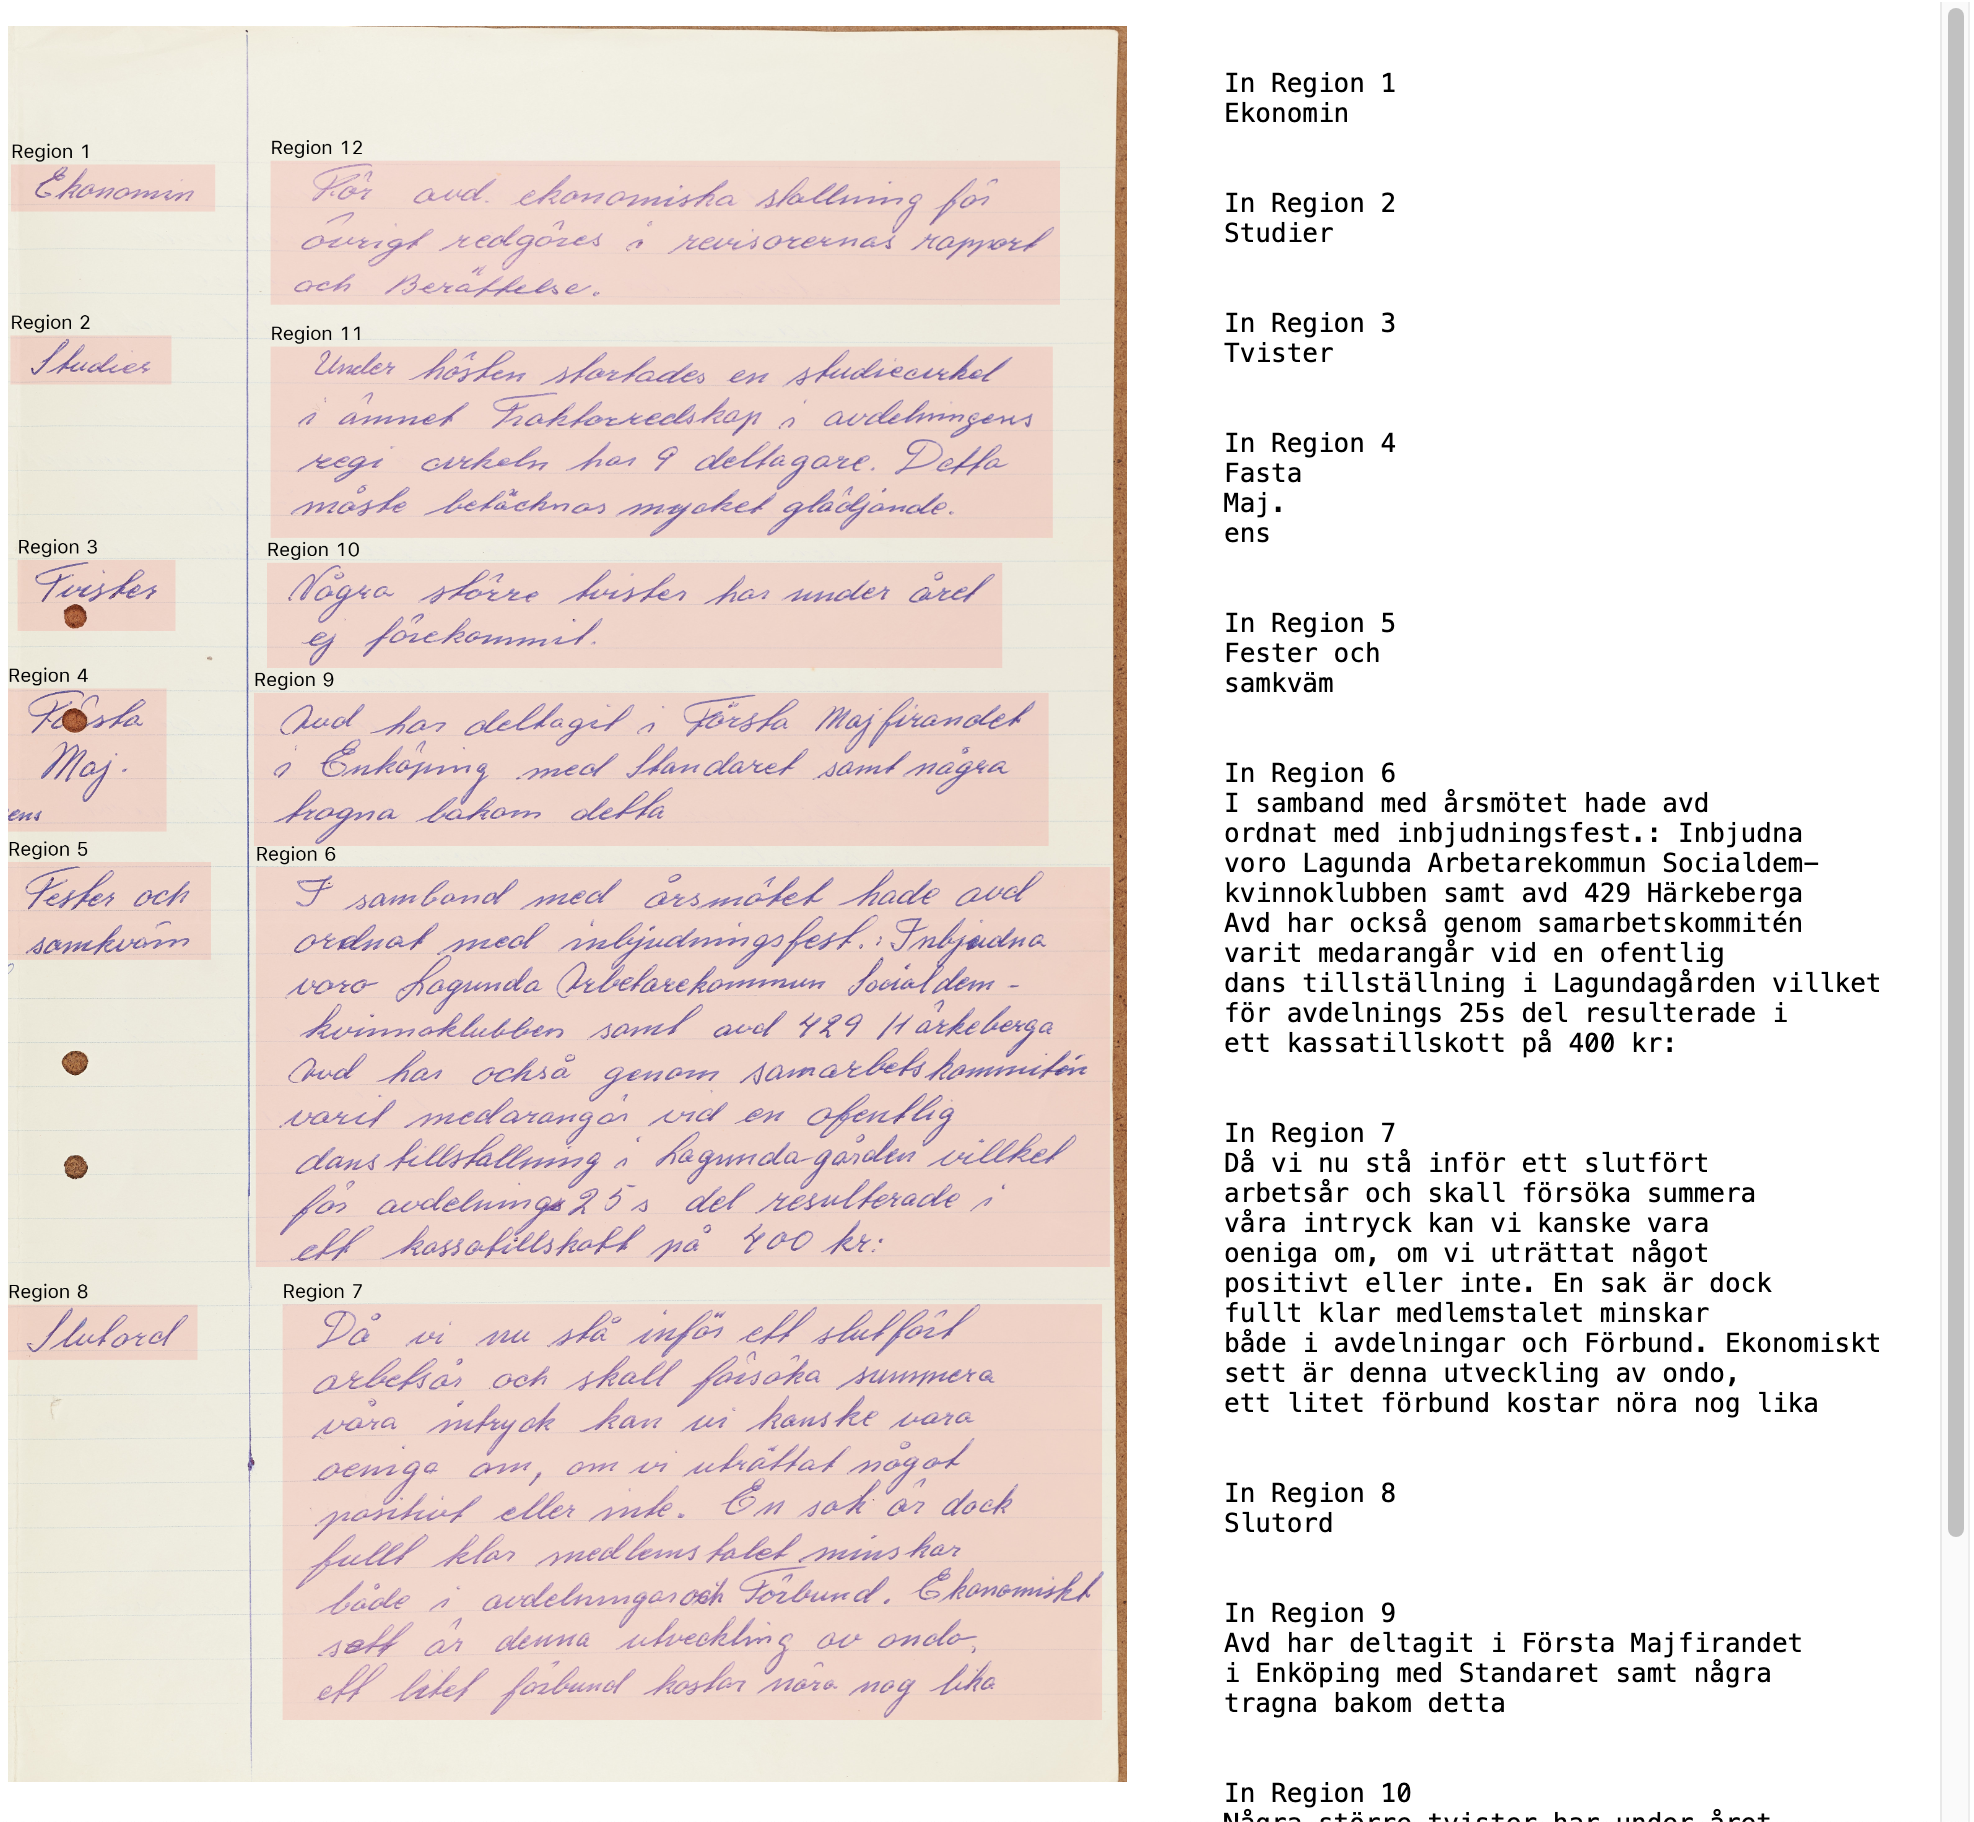 Region 1
Ekonomin
Region 12
För avd. ekonomiska stallning för
övrigt redgöres i revisorernas rapport
och Berättelse.
Region 2
Studier
Region 11
Under hösten startades en studiecirkel
i ämnet Traktorredskap i avdelningens
regi cirkeln har 9 deltagare. Detta
måste betäcknas mycket glädjande.
Region 3
Tvister
Region 10
Några större tvister har under året
ej förekommit.
Region 4
Första
Maj.
ens
Region 9
Avd har deltagit i Första Majfirandet
i Enköping med Standaret samt några
trogna bakom detta
Region 5
Fester och
samkväm
Region 6
I samband med årsmötet hade avd
ordnat med inbjudningsfest.: Inbjudna
voro Lagunda Arbetarekommun Socialdem-
kvinnoklubben samt avd 429 Härkeberga
Avd har också genom samarbetskommitén
varit medarangör vid en ofentlig
danstillstallning i Lagunda-gården villket
för avdelnings 25s del resulterade i
ett kassatillskott på 400 kr:
Region 8
Slutord
Region 7
Då vi nu stå inför ett slutfört
arbetsår och skall försöka summera
våra intryck kan vi kanske vara
oeniga om, om vi uträttat något
positivt eller inte. En sak är dock
fullt klar medlemstalet minskar
både i avdelningar och Förbund. Ekonomiskt
sett är denna utveckling av ondo,
ett litet förbund kostar nära nog lika
In Region 1
Ekonomin
In Region 2
Studier
In Region 3
Tvister
In Region 4
Fasta
Maj.
ens
In Region 5
Fester och
samkväm
In Region 6
I samband med årsmötet hade avd
ordnat med inbjudningsfest.: Inbjudna
voro Lagunda Arbetarekommun Socialdem-
kvinnoklubben samt avd 429 Härkeberga
Avd har också genom samarbetskommitén
varit medarangår vid en ofentlig
dans tillställning i Lagundagården villket
för avdelnings 25s del resulterade i
ett kassatillskott på 400 kr:
In Region 7
Då vi nu stå inför ett slutfört
arbetsår och skall försöka summera
våra intryck kan vi kanske vara
oeniga om, om vi uträttat något
positivt eller inte. En sak är dock
fullt klar medlemstalet minskar
både i avdelningar och Förbund. Ekonomiskt
sett är denna utveckling av ondo,
ett litet förbund kostar nöra nog lika
In Region 8
Slutord
In Region 9
Avd har deltagit i Första Majfirandet
i Enköping med Standaret samt några
tragna bakom detta
In Region 10
Några större tvister har under året